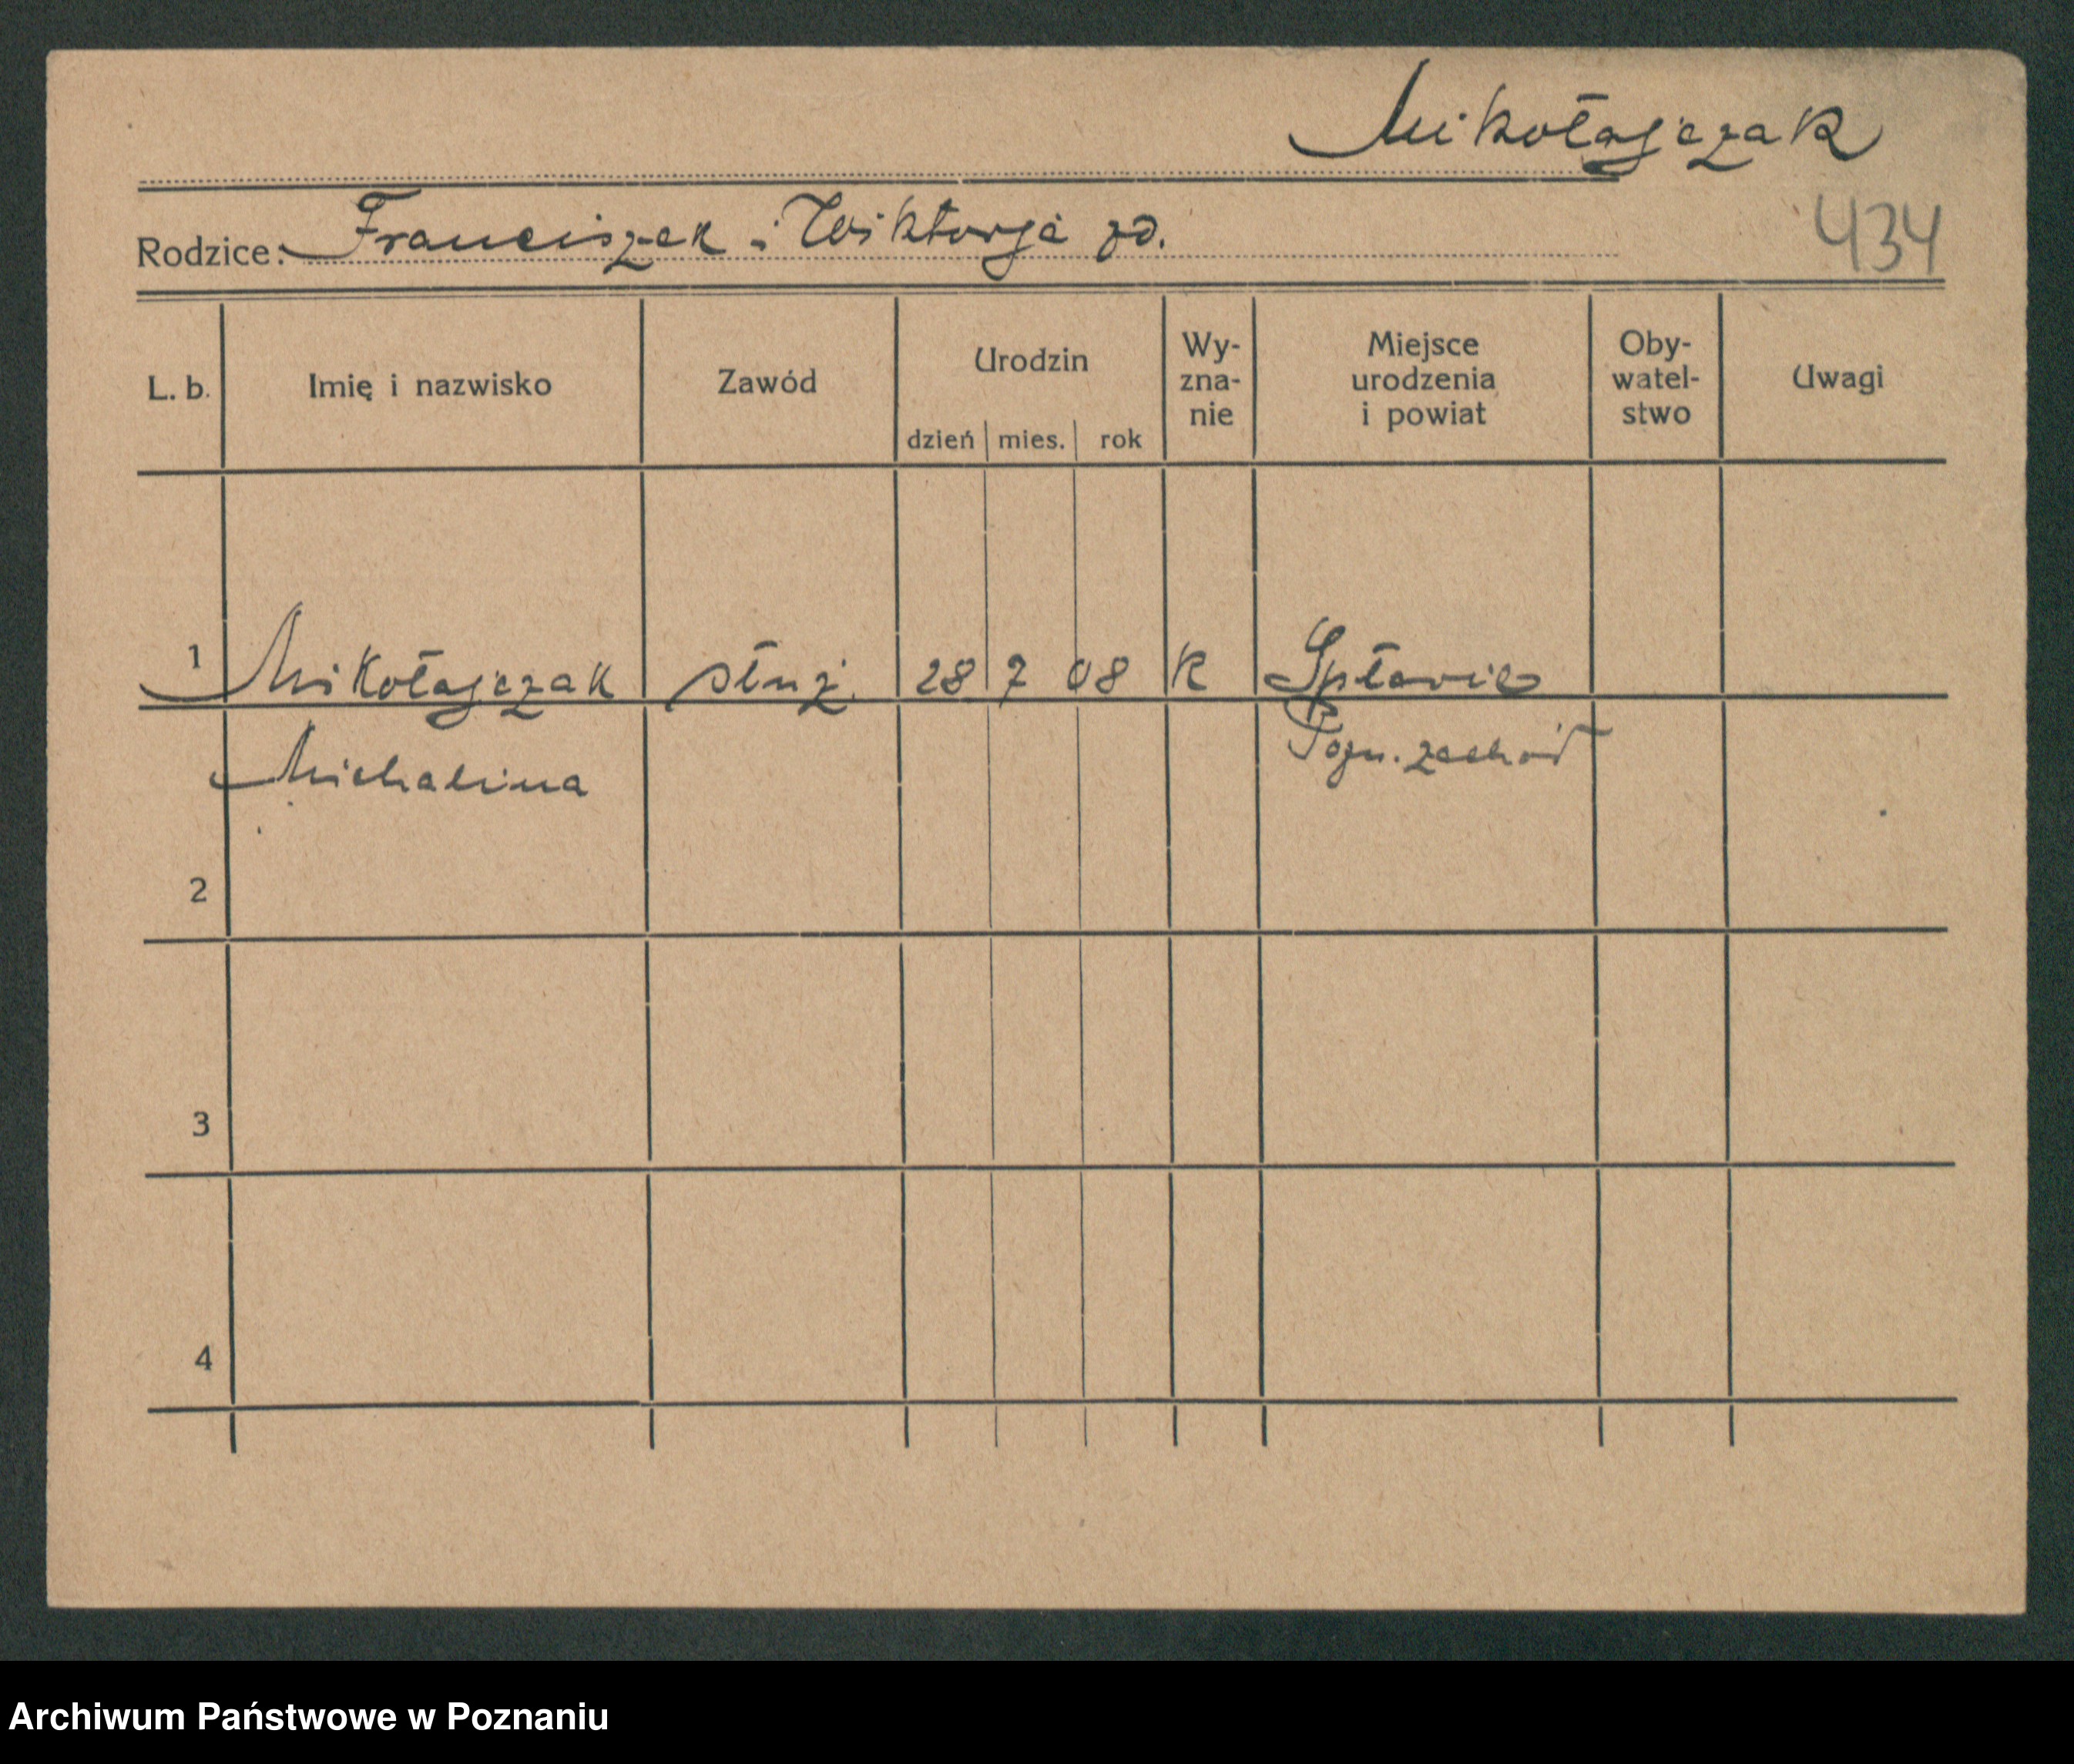 Mikołajczak
Rodzice: Franciszek i Wiktorja
434
L. b. Imię i nazwisko Zawód Urodzin dzień mies. rok Wy-zna-nie Miejsce urodzenia i powiat Oby-watel-stwo Uwagi
1 Mikołajczak służ. 28 7 08 K Spławie
Michalina Pozn. zachód
2
3
4
Archiwum Państwowe w Poznaniu